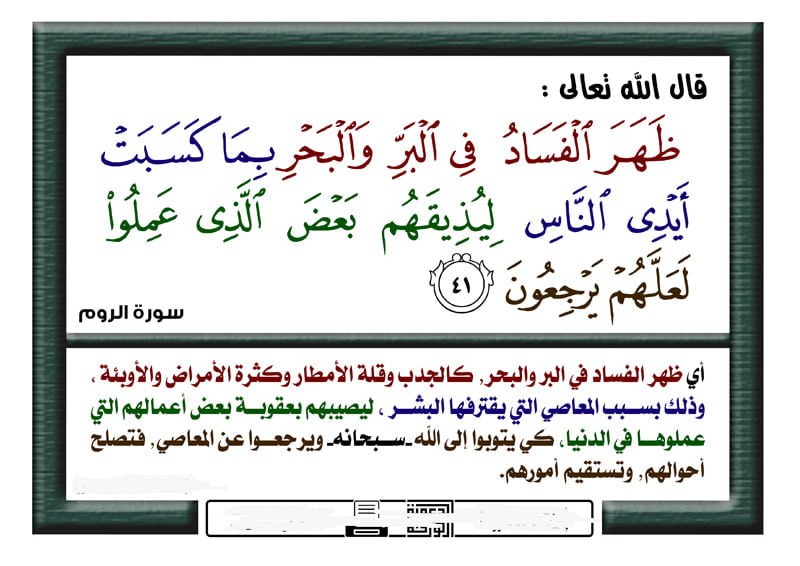 قال الله تعالى :
ظَهَرَ ٱلْفَسَادُ فِي ٱلْبَرِّ وَٱلْبَحْرِ بِمَا كَسَبَتْ
أَيْدِى ٱلنَّاسِ لِيُذِيقَهُم بَعْضَ ٱلَّذِى عَمِلُوا۟
لَعَلَّهُمْ يَرْجِعُونَ ٤١
سورة الروم
أي ظهر الفساد في البر والبحر, كالجدب وقلة الأمطار وكثرة الأمراض والأوبئة ،
وذلك بسبب المعاصي التي يقترفها البشر ، ليصيبهم بعقوبة بعض أعمالهم التي
عملوها في الدنيا، كي يتوبوا إلى الله ـ سبحانه ـ ويرجعوا عن المعاصي, فتصلح
أحوالهم, وتستقيم أمورهم.